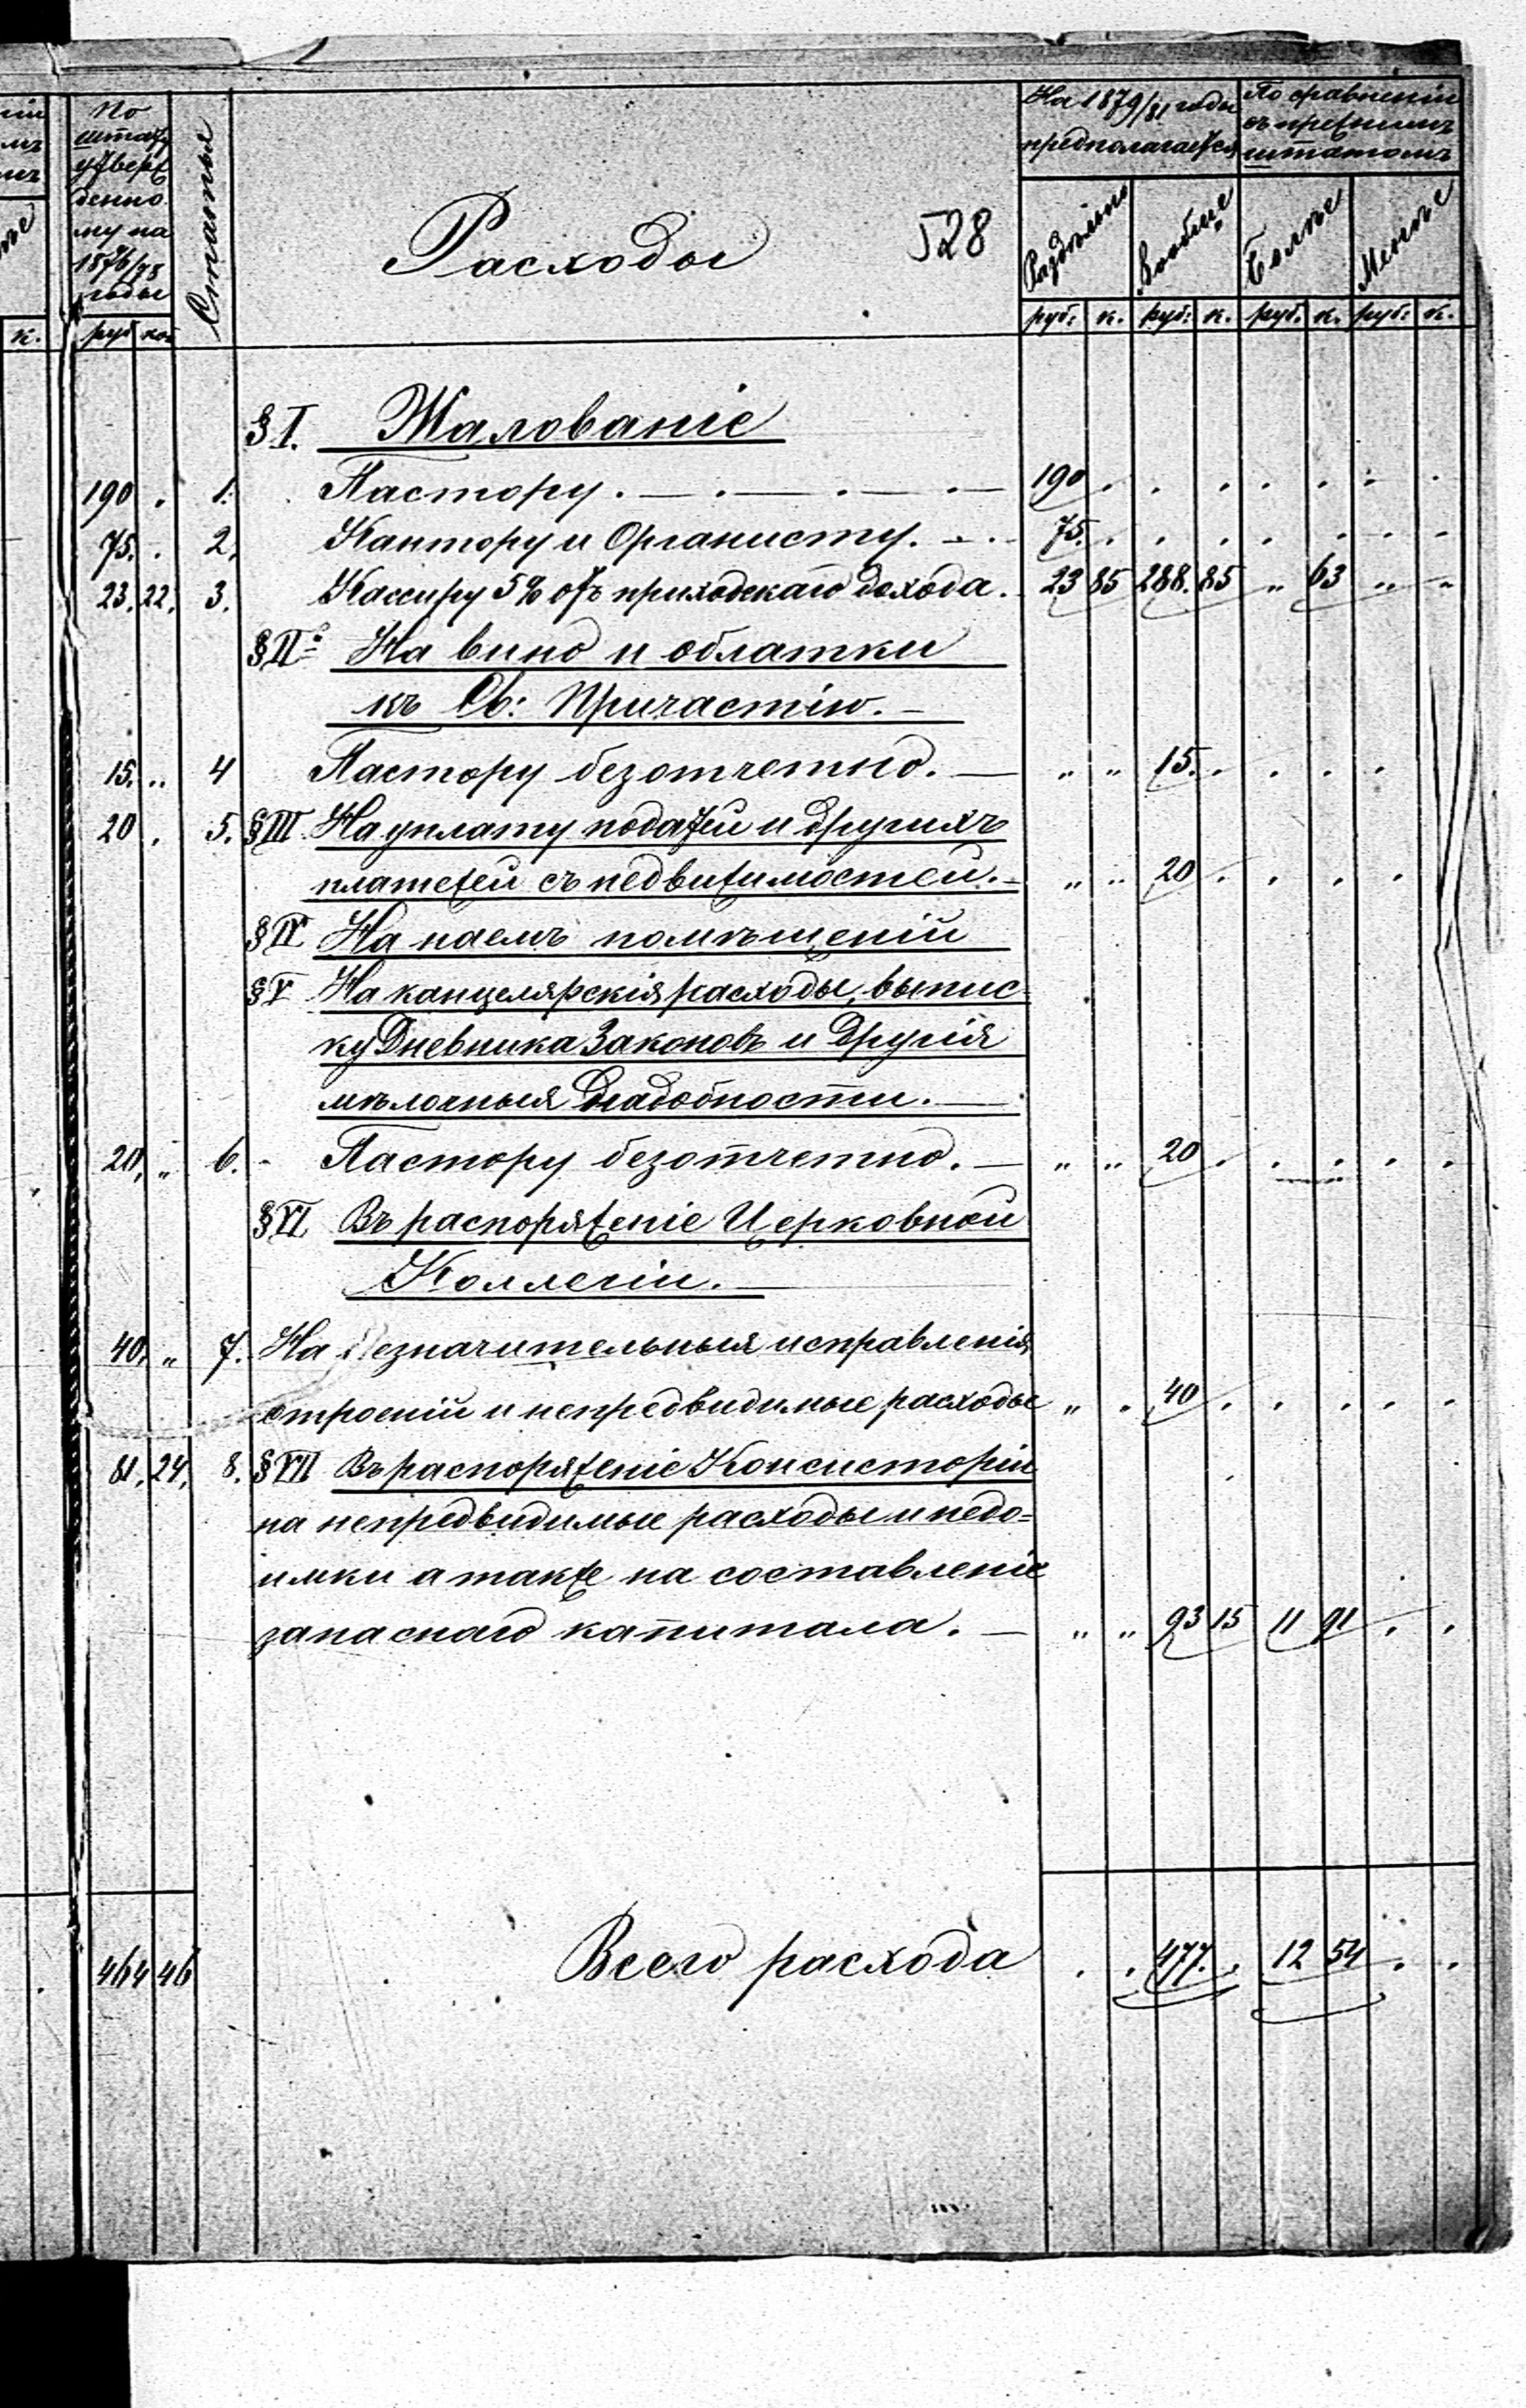 По
штату
утверж
денно
му на
1876/78
годы
руб коп
Статьи
Расходы
528
На 1879/81 годы
предполагается
По сравненiи
съ прежнимъ
штатомъ
Раздѣльно
Вообще
Болѣе
Менѣе
руб: к. руб: к. руб. к. руб: к.
§ I. Жалованiе
190 . 1. Пастору . — . — . — . — 190 . . . . . . .
75. . 2. Кантору и Органисту. - . - 75. . . . . . - -
23. 22. 3. Кассиру 5% отъ приходскаго дохода. 23 85 288. 85 „ 63 „ „
§ II. На вино и облатки
къ Св: Причастiю. —
15. „ 4 Пастору безотчетно. — „ „ 15. . . . .
20 . 5. § III На уплату податей и другихъ
платежей съ недвижимостей. — „ „ 20 . . . .
§ IV На наемъ помѣщенiй
§ V На канцелярскiя расходы, выпис-
ку Дневника Законовъ и другiя
мѣлочныя надобности. —
20, „ 6. - Пастору безотчетно. — „ „ 20 . . . . .
§ VI Въ распоряженiе Церковной
Коллегiи. —
40, „ 7. На незначительныя исправленiя
строенiй и непредвидимые расходы „ . 40 . . . . .
81, 24, 8. § VII Въ распоряженiе Консисторiи
на непредвидимые расходы и недо=
имки а также на составленiе
запаснаго капитала. — „ „ 93 15 11 91 . .
464 46 Всего расхода . . 477. . 12 54 . .